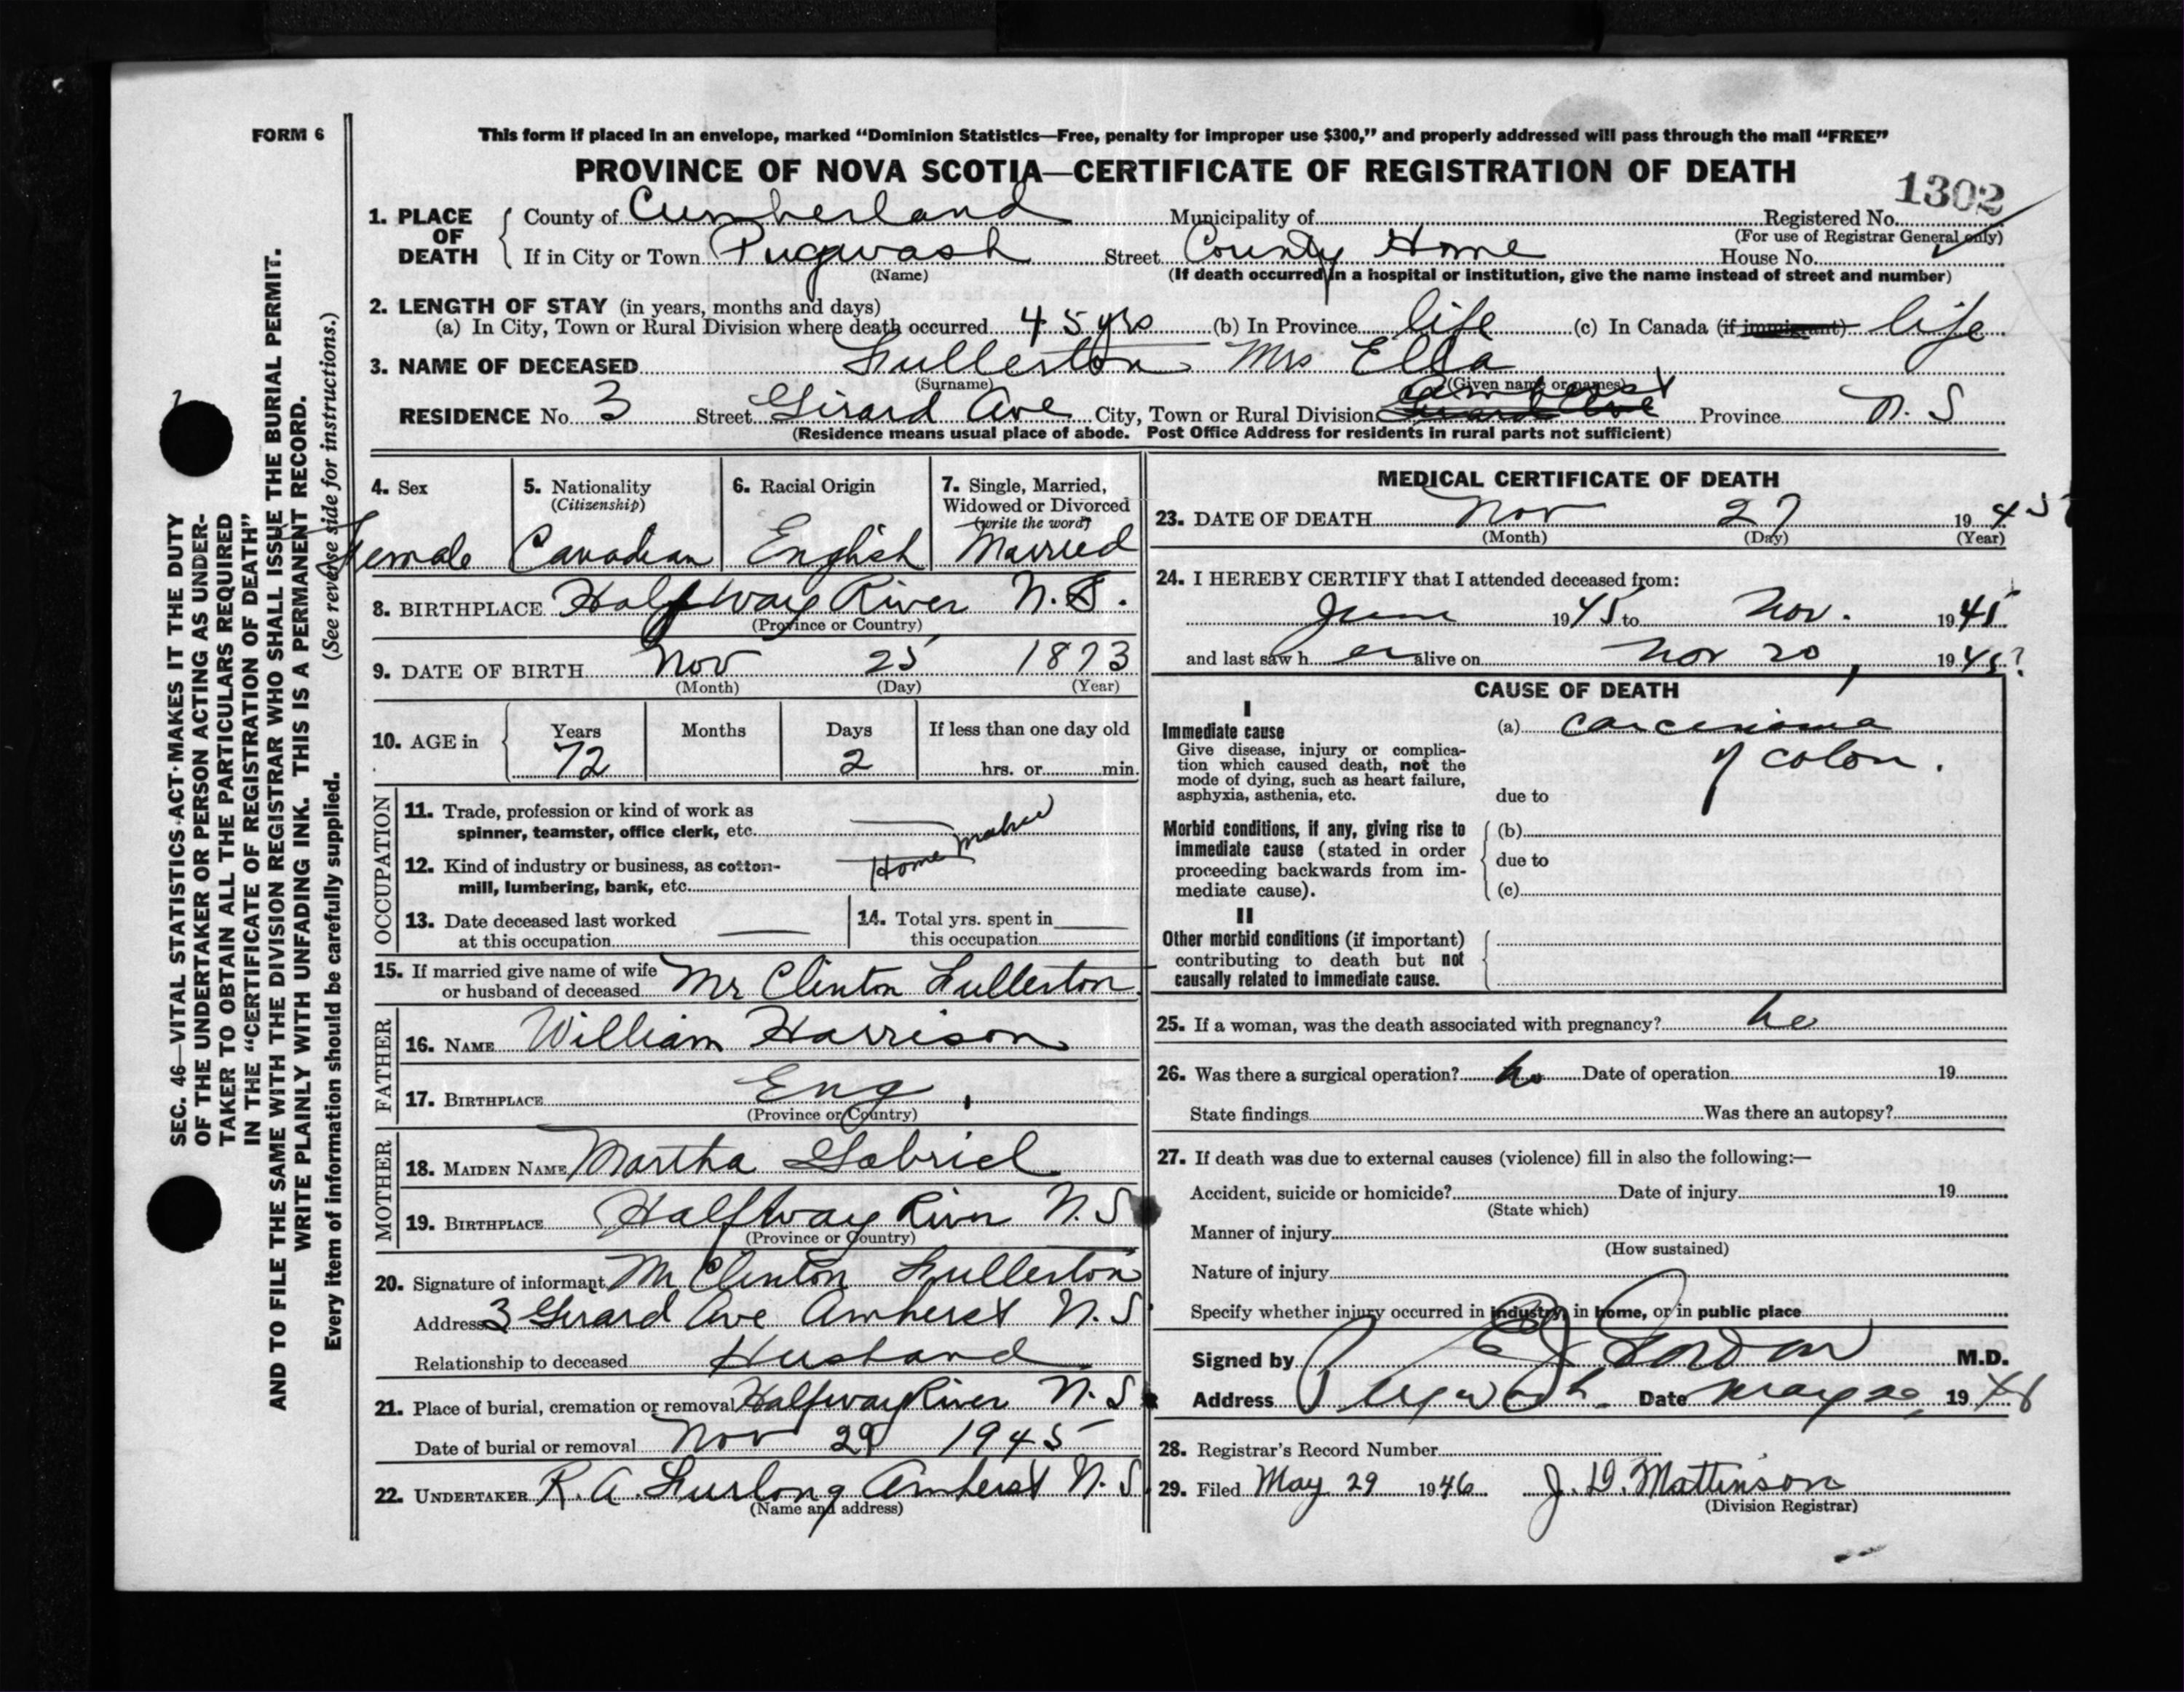 FORM 6
This form if placed in an envelope, marked “Dominion Statistics—Free, penalty for improper use $300,” and properly addressed will pass through the mail “FREE”
PROVINCE OF NOVA SCOTIA—CERTIFICATE OF REGISTRATION OF DEATH
1302
1. PLACE OF DEATH County of Cumberland Municipality of Registered No.
(For use of Registrar General only)
If in City or Town Pugwash Street County Home House No.
(Name) (If death occurred in a hospital or institution, give the name instead of street and number)
2. LENGTH OF STAY (in years, months and days)
(a) In City, Town or Rural Division where death occurred 45 yrs (b) In Province life (c) In Canada (if immigrant) life
3. NAME OF DECEASED Fullerton Mrs Ella
(Surname) (Given name or names)
Amherst
RESIDENCE No. 3 Street Girard Ave City, Town or Rural Division Girard Ave Province N. S
(Residence means usual place of abode. Post Office Address for residents in rural parts not sufficient)
4. Sex 5. Nationality 6. Racial Origin 7. Single, Married,
(Citizenship) Widowed or Divorced
(write the word)
Female Canadian English Married
8. BIRTHPLACE Halfway River N.S.
(Province or Country)
9. DATE OF BIRTH Nov 25 1873
(Month) (Day) (Year)
10. AGE in Years Months Days If less than one day old
72 2 hrs. or min.
OCCUPATION
11. Trade, profession or kind of work as
spinner, teamster, office clerk, etc.
Home maker
12. Kind of industry or business, as cotton-
mill, lumbering, bank, etc.
13. Date deceased last worked 14. Total yrs. spent in
at this occupation this occupation
15. If married give name of wife
or husband of deceased Mr Clinton Fullerton
FATHER
16. NAME William Harrison
17. BIRTHPLACE Eng.
(Province or Country)
MOTHER
18. MAIDEN NAME Martha Gabriel
19. BIRTHPLACE Halfway River N.S
(Province or Country)
20. Signature of informant Mr Clinton Fullerton
Address 3 Girard Ave Amherst N.S
Relationship to deceased Husband
21. Place of burial, cremation or removal Halfway River N.S
Date of burial or removal Nov 29 1945
22. UNDERTAKER R. A. Furlong Amherst N.S
(Name and address)
MEDICAL CERTIFICATE OF DEATH
23. DATE OF DEATH Nov 27 1945
(Month) (Day) (Year)
24. I HEREBY CERTIFY that I attended deceased from:
June 1945 to Nov. 1945
and last saw her alive on Nov 20, 1945?
CAUSE OF DEATH
I
Immediate cause (a) carcinoma
Give disease, injury or complica-
tion which caused death, not the
of colon.
mode of dying, such as heart failure,
asphyxia, asthenia, etc. due to
Morbid conditions, if any, giving rise to (b)
immediate cause (stated in order due to
proceeding backwards from im-
mediate cause). (c)
II
Other morbid conditions (if important)
contributing to death but not
causally related to immediate cause.
25. If a woman, was the death associated with pregnancy? no
26. Was there a surgical operation? no Date of operation 19
State findings Was there an autopsy?
27. If death was due to external causes (violence) fill in also the following:—
Accident, suicide or homicide? Date of injury 19
(State which)
Manner of injury
(How sustained)
Nature of injury
Specify whether injury occurred in industry, in home, or in public place
Signed by M.D.
Address Pugwash. Date May 20, 1946
28. Registrar's Record Number
29. Filed May 29 1946 J. D. Mattinson
(Division Registrar)
SEC. 46—VITAL STATISTICS·ACT·MAKES IT THE DUTY
OF THE UNDERTAKER OR PERSON ACTING AS UNDER-
TAKER TO OBTAIN ALL THE PARTICULARS REQUIRED
IN THE “CERTIFICATE OF REGISTRATION OF DEATH”
AND TO FILE THE SAME WITH THE DIVISION REGISTRAR WHO SHALL ISSUE THE BURIAL PERMIT.
WRITE PLAINLY WITH UNFADING INK. THIS IS A PERMANENT RECORD.
Every item of information should be carefully supplied. (See reverse side for instructions.)